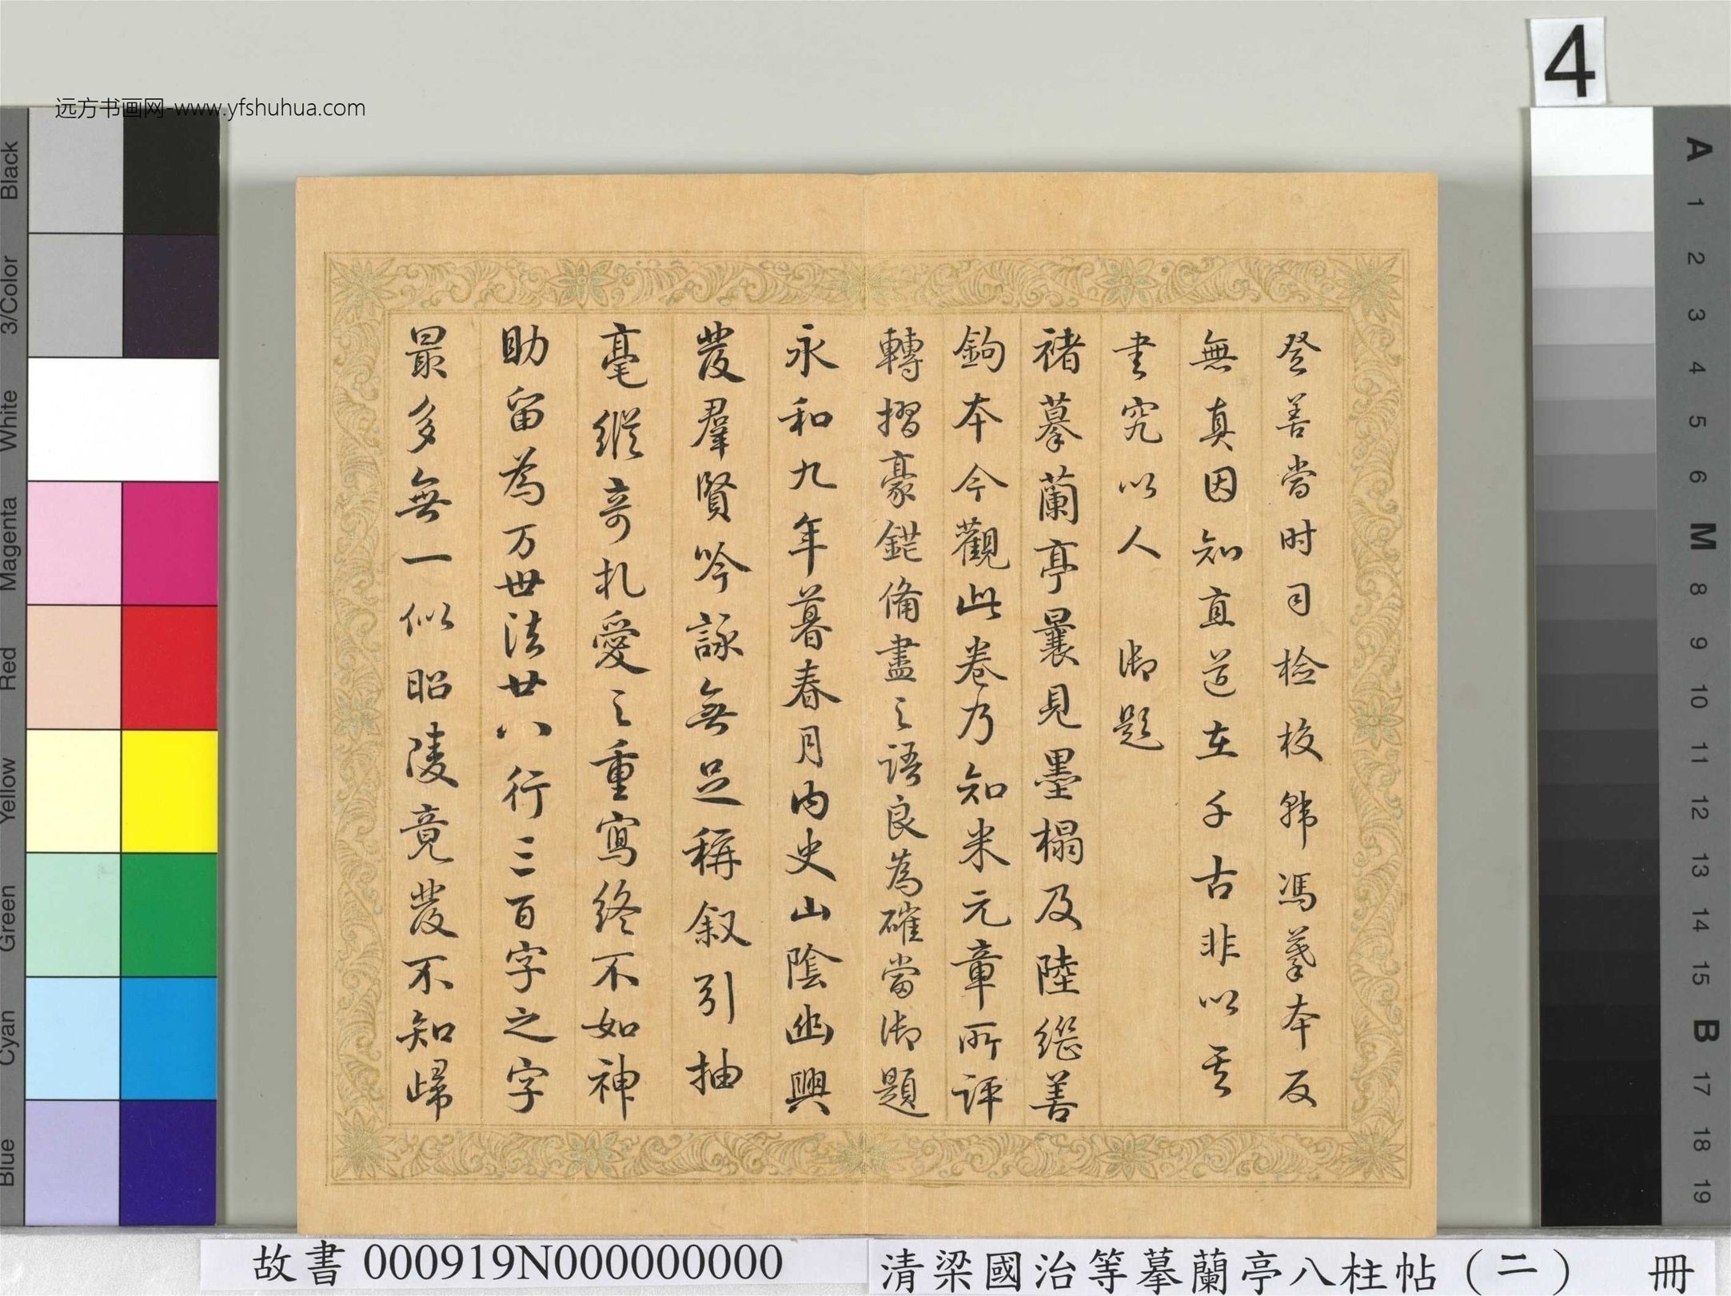 远方书画网-www.yfshuhua.com
4
登善當时司检校韩馮摹本反
無真因知直道在千古非以其
書究以人 御題
褚摹蘭亭曩見墨榻及陸繼善
鉤本今觀此卷乃知米元章所評
轉摺豪鋩備盡之語良為確當御題
永和九年暮春月内史山陰幽興
發羣賢吟詠無足稱叙引抽
毫縱奇札愛之重寫終不如神
助留為万世法廿八行三百字之字
最多無一似昭陵竟發不知歸
Black
3/Color
White
Magenta
Red
Yellow
Green
Cyan
Blue
A
1
2
3
4
5
6
M
8
9
10
11
12
13
14
15
B
17
18
19
故書 000919N000000000
清梁國治等摹蘭亭八柱帖（二） 冊